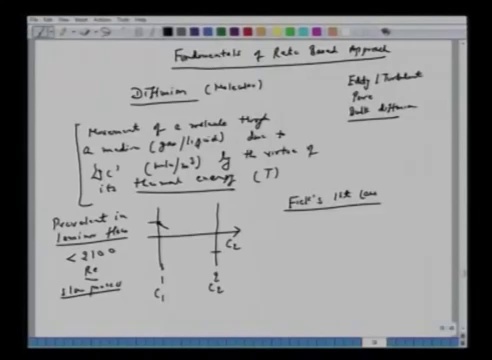 Fundamentals of Rate Based Approach
Diffusion (Molecular)
Eddy / Turbulent
Pore
Bulk diffusion
Movement of a molecule through
a medium (gas/liquid) due to
(mole/m³) by the virtue of
its thermal energy (T)
Fick's 1st Law
Prevalent in
laminar flow
< 2100
Re
slow process
C2
1
2
C1
C2